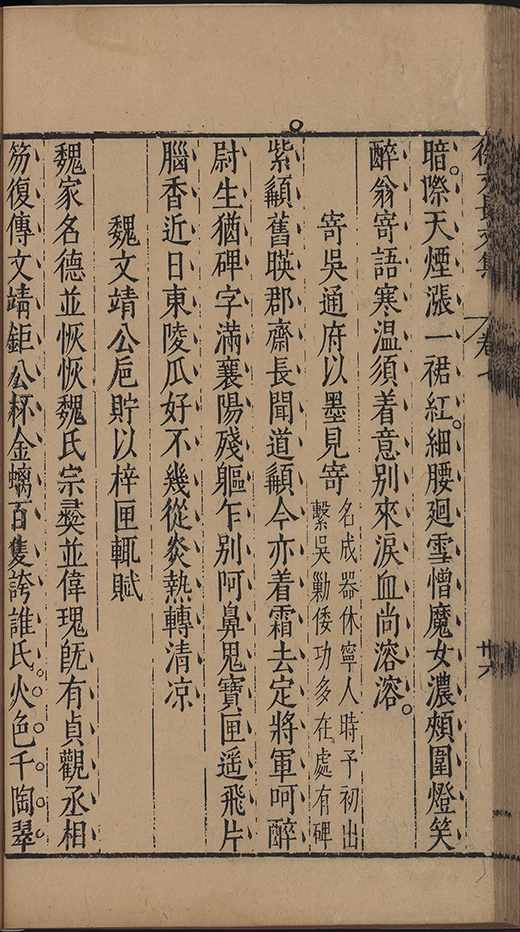 徐文長文集 卷七 卅六
暗際天煙漲一裙紅細腰廻雪憎魔女濃頰圍燈笑
醉翁寄語寒温須着意別來淚血尚溶溶
寄吳通府以墨見寄 名成器休寧人時予初出
繫吳勦倭功多在處有碑
紫顓舊暎郡齋長聞道顓今亦着霜去定將軍呵醉
尉生猶碑字滿襄陽殘軀乍別阿鼻鬼寶匣遥飛片
腦香近日東陵瓜好不幾從炎熱轉清凉
魏文靖公巵貯以梓匣輒賦
魏家名德並恢恢魏氏宗彜並偉瑰旣有貞觀丞相
笏復傳文靖鉅公杯金螭百隻誇誰氏火色千陶翠